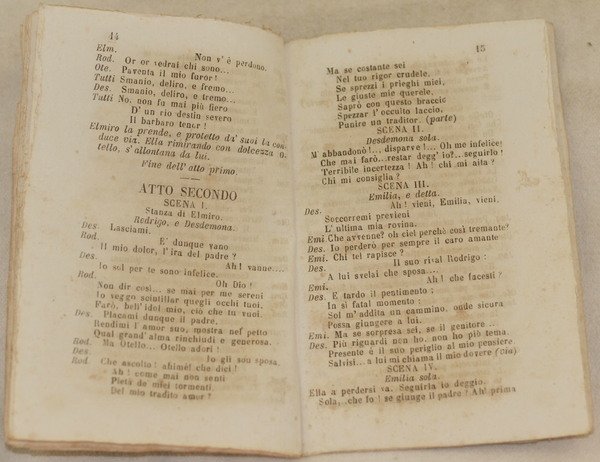 14
Non v'è perdono.
Elm.
Rod. Or or vedrai chi sono...
Ote. Paventa il mio furor!
Tutti Smanio, deliro, e tremo...
Des. Smanio, deliro, e tremo...
Tutti No, non fu mai più fiero
D' un rio destin severo
Il barbaro tenor!
Elmiro la prende, e protetto da' suoi la con-
duce via. Ella rimirando con dolcezza O-
tello, s'allontana da lui.
Fine dell'atto primo.
ATTO SECONDO
SCENA I.
Stanza di Elmiro.
Rodrigo, e Desdemona.
Des. Lasciami.
Rod. E' dunque vano
Il mio dolor, l'ira del padre?
Des. Ah! vanne....
Io sol per te sono infelice.
Rod. Oh Dio!
Non dir così... se mai per me sereni
Io veggo scintillar quegli occhi tuoi,
Farò, bell'idol mio, ciò che tu vuoi.
Des. Placami dunque il padre,
Rendimi l'amor suo, mostra nel petto
Qual grand'alma rinchiudi e generosa.
Rod. Ma Otello... Otello adori!
Des. Io gli son sposa.
Rod. Che ascolto! ahimè! che dici!
Ah! come mai non senti
Pietà de miei tormenti,
Del mio tradito amor!
15
Ma se costante sei
Nel tuo rigor crudele,
Se sprezzi i prieghi miei,
Le giuste mie querele,
Saprò con questo braccio
Spezzar l'occulto laccio,
Punire un traditor. (parte)
SCENA II.
Desdemona sola.
M' abbandonò!... disparve!... Oh me infelice!
Che mai farò...restar degg' io?...seguirlo!
Terribile incertezza! Ah! chi mi aita?
Chi mi consiglia?
SCENA III.
Emilia, e detta.
Des. Ah! vieni, Emilia, vieni,
Soccorremi previeni
L' ultima mia rovina.
Emi Che avvenne? oh ciel perchè così tremante?
Des. Io perderò per sempre il caro amante
Emi. Chi tel rapisce?
Des. Il suo rival Rodrigo:
A lui svelai che sposa....
Emi. Ah! che facesti?
Des. E tardo il pentimento:
In sì fatal momento:
Sol m'addita un cammino, onde sicura
Possa giungere a lui.
Emi. Ma se sorpresa sei, se il genitore...
Des. Più riguardi non ho, non ho più tema.
Presente è il suo periglio al mio pensiere.
Salvisi... a lui mi chiama il mio dovere (via)
SCENA IV.
Emilia sola.
Ella a perdersi va. Seguirla io deggio.
Sola, che fo! se giunge il padre! Ah! prima